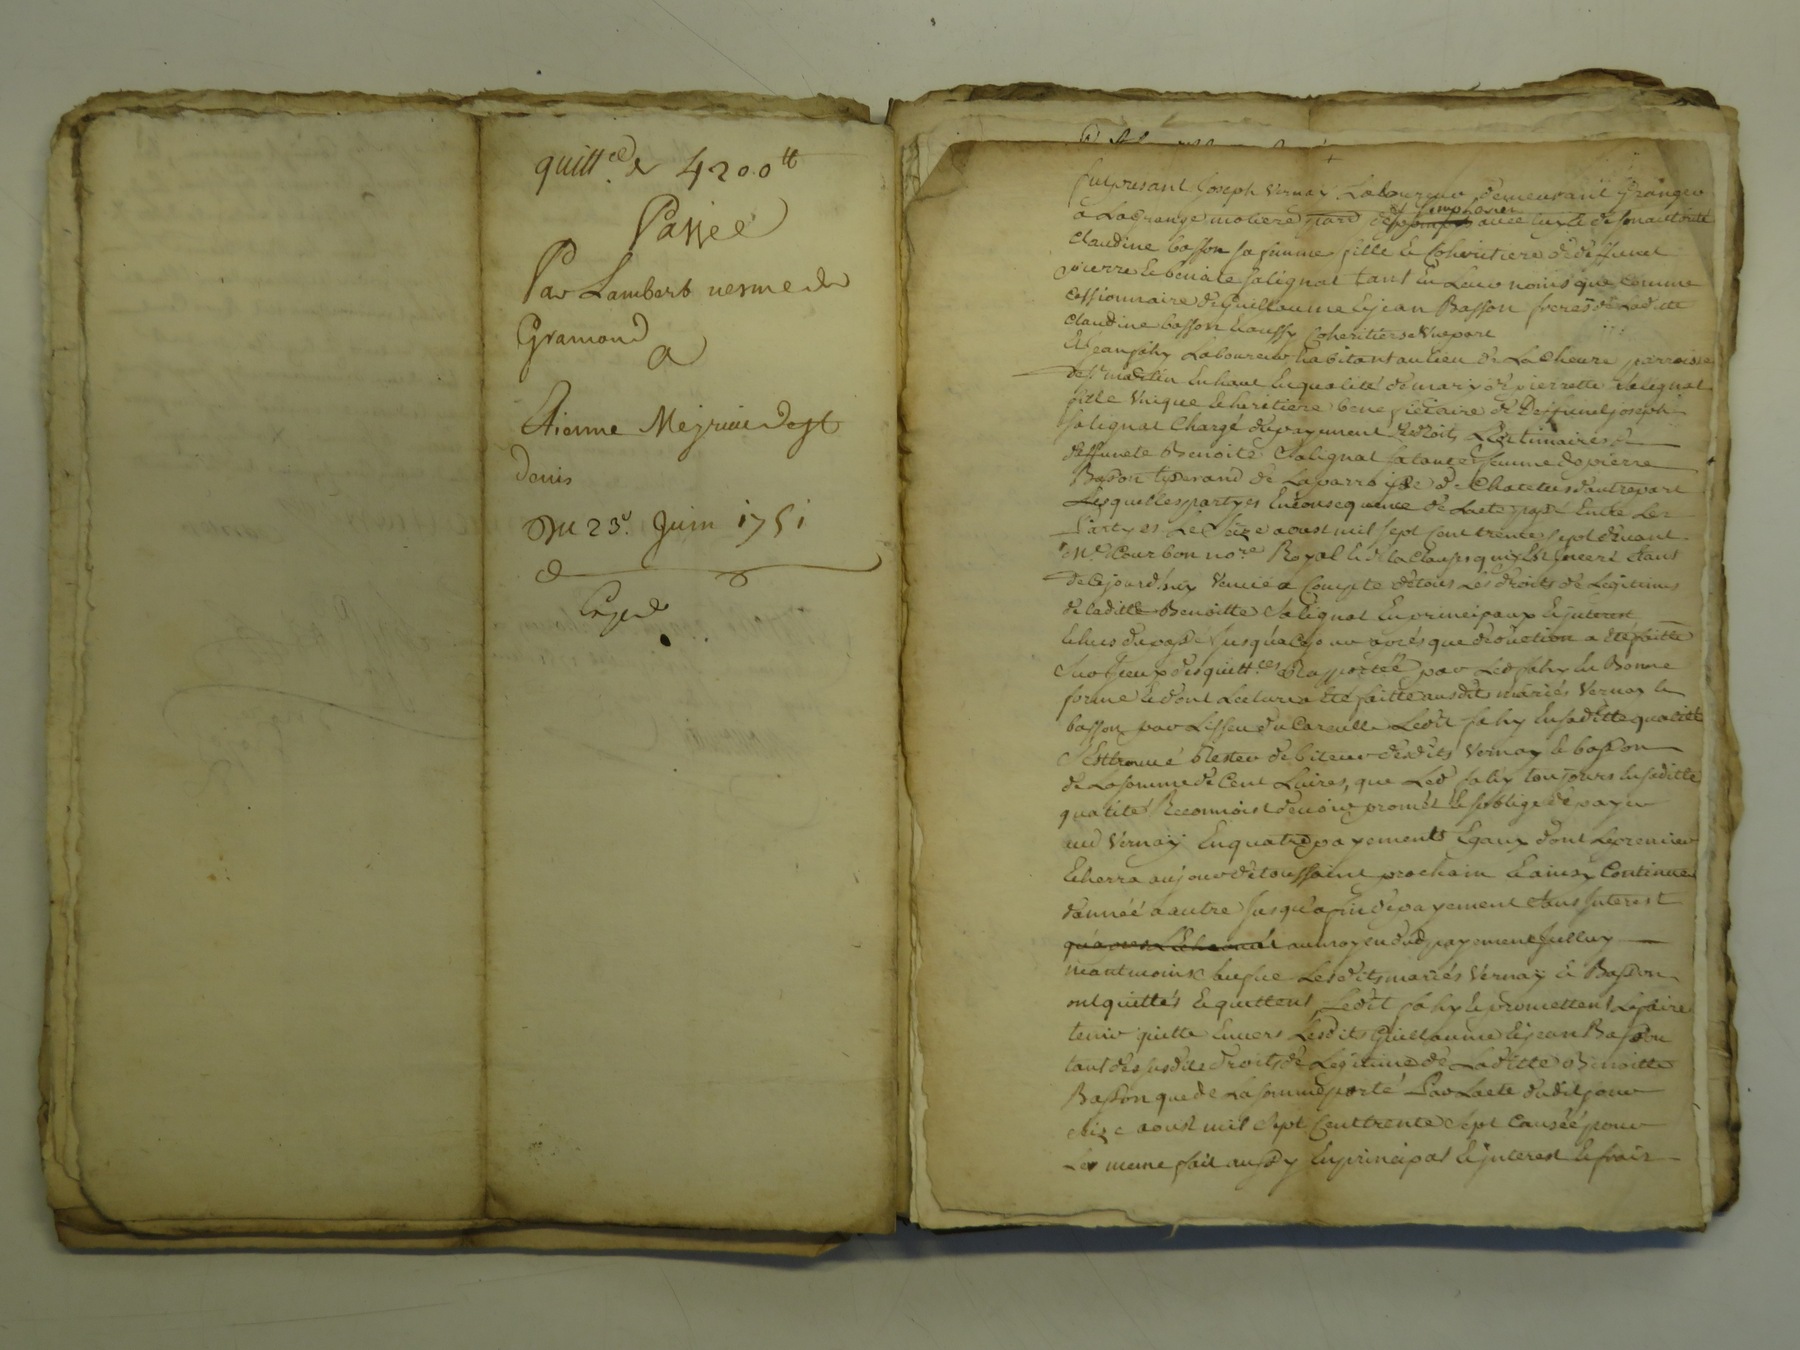 quitt.ce de 4200 tt
Passée
Par Lambert nesme de
Gramond
A
Etienne Meyrieu de st
denis
Du 23e. Juin 1751
fut present Joseph Vernay Laboureur demeurant Granger
a La Grange
st simphorien
avec luy et de son authorité
Claudine basson sa femme fille et Coheritiere de deffunct
pierre et benoite salignat tant en Leur noms que comme
Cessionnaire de Guillaume et jean Basson freres de Laditte
Claudine basson et aussy Coheritiers d'une part
Et jean fahy Laboureur habitant au lieu de La Cheure parroisse
de st martin en haut en qualité de mary de pierrette salignat
fille Unique et heritiere beneficiaire de Deffunct joseph
salignat Chargé du payement des droits Legitimaires de
deffuncte Benoite Salignat sa tante femme de pierre
Basson tisserand de La parroisse de Chatelus d'autre part
Lesquelles partyes En consequence de L'acte passé Entre Les
Partyes Le seize aoust mil sept Cent trente sept devant
Me Courbon nore Royal et de la Clause qui y est inceré étant
de Cejourd'huy Venue a Compte de tous Les droits de Legitime
de laditte Benoitte Salignat En principaux et interest
Echeus du passé jusqu'a ce jour aprés que deduction a eté faitte
Sur Iceux des quitt.ces Raportée par Led fahy En Bonne
forme et dont Lecture a eté faitte ausdits mariés Vernay et
basson par L'issue du Carcul Ledit fahy En saditte qualité
S'est trouvé Rester debiteur desdits Vernay et basson
de La somme de Cent Livres, que Led fahy toujours En saditte
qualité Reconnoist devoir promet et s'oblige de payer
aud Vernay En quatre payements Egaux dont Le premier
Echerra au jour de toussaint prochain Et ainsy Continuer
d'année a autre jusqu'a fin de payement sans Interest
au moyen dud payement
neantmoins Lesdits mariés Vernay et Basson
ont quittés et quittent Ledit fahy et promettent Le faire
tenir quitte Envers Lesdits Guillaume et jean Basson
tant des susdits droits de Legitime de Laditte Benoitte
Basson que de La somme porté Par L'acte dudit jour
seize aoust mil Sept Cent trente Sept Causée pour
Le meme fait aussy En principal et interest et frais